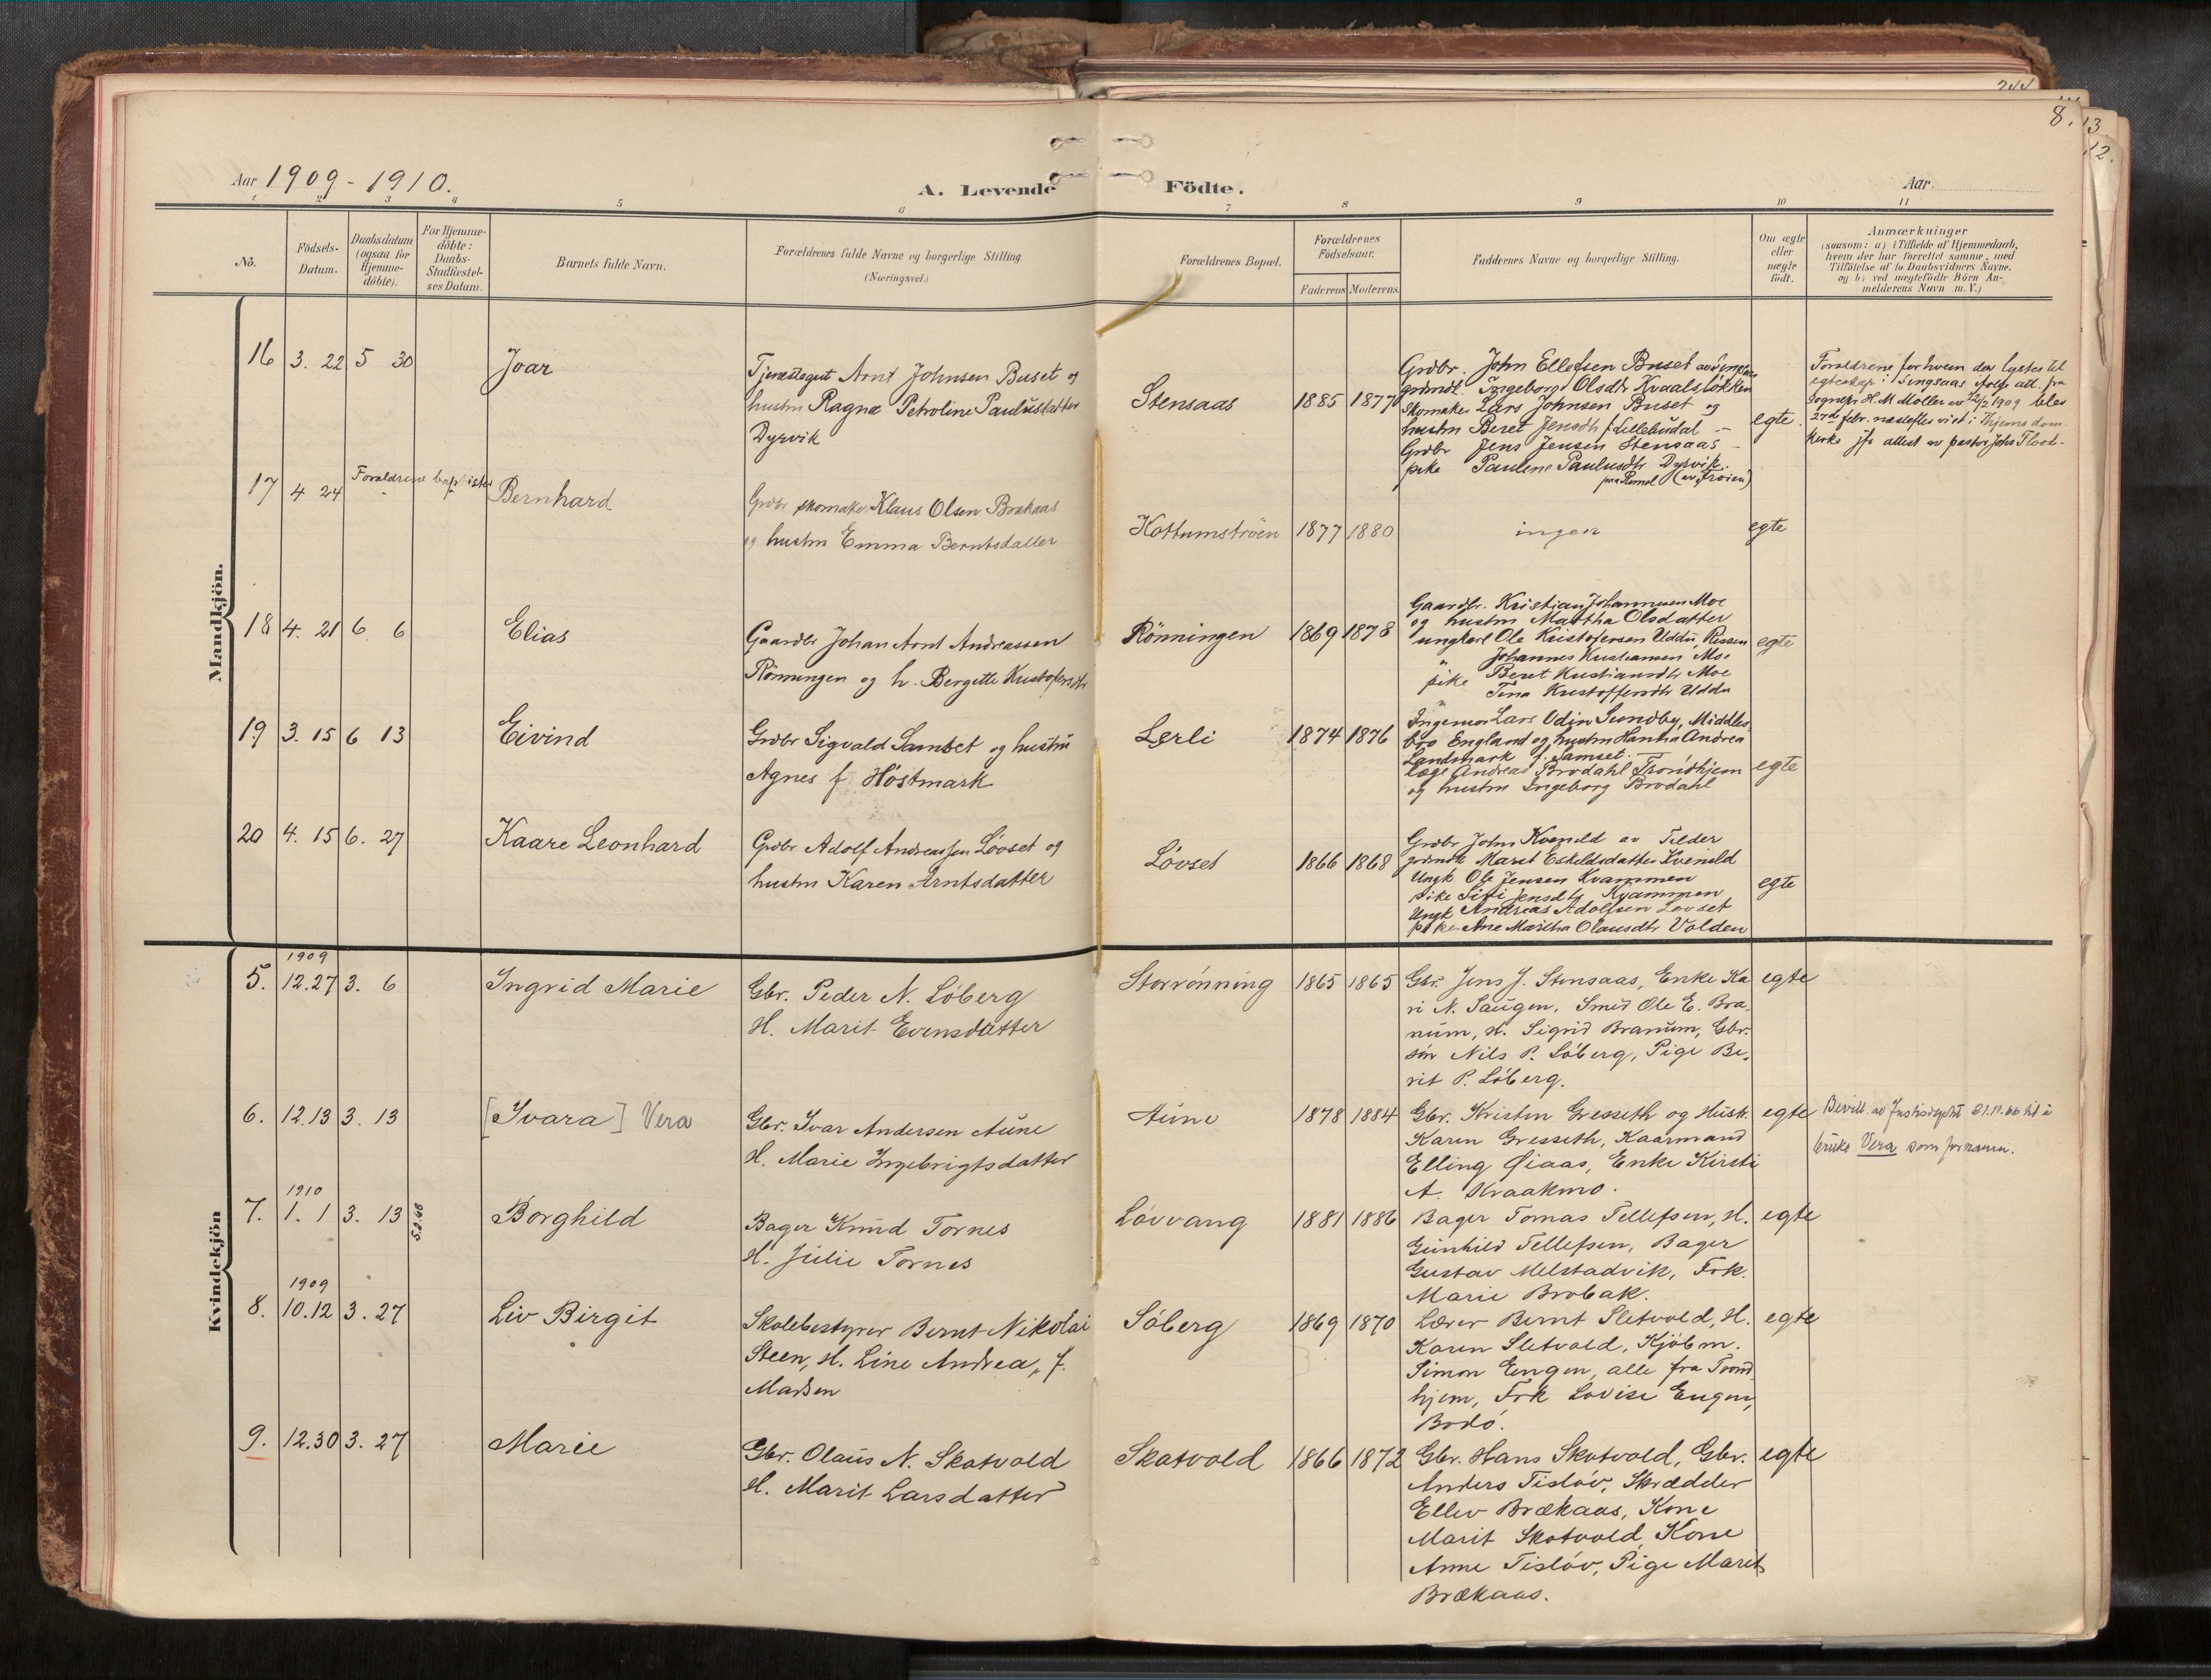 8.
Aar 1909-1910.
A. Levende Födte.
Aar
1 2 3 4 5 6 7 8 9 10 11
No.
Födsels-
Datum.
Daabsdatum
(ogsaa for
Hjemme-
döbte).
For Hjemme-
döbte:
Daabs-
Stadfæstel-
ses Datum.
Barnets fulde Navn.
Forældrenes fulde Navne og borgerlige Stilling
(Næringsvei.)
Forældrenes Bopæl.
Forældrenes
Födselsaar.
Faderens Moderens
Faddernes Navne og borgerlige Stilling.
Om ægte
eller
uægte
födt.
Anmærkninger
(saasom: a) i Tilfælde af Hjemmedaab,
hvem der har forrettet samme, med
Tilföielse af to Daabsvidners Navne,
og b) ved uægtefödte Börn An-
melderens Navn m. V.)
Mandkjön.
16 3. 22 5 30
Joar
Arnt Johnsen Buset og
hustru Ragna Petroline Paulusdatter
Dyrvik
Stensaas
1885 1877
Grdbr. John Ellefsen Buset
Ingeborg Olsdtr Kvaalsløkken
Skomaker Lars Johnsen Buset og
hustru Beret Jensdtr f. Lillebudal
Grdbr Jens Jensen Stensaas
pike Pauline Paulusdtr Dyrvik
(av Frøien)
egte
Forældrene for hvem der lystes til
egteskap i Singsaas ifølge att. fra
Sognepr. H. M. Møller av 12/2 1909 blev
febr. næstefter viet i Trhjems dom-
kirke jfr attest av pastor Johs Flood.
17 4 24
Forældrene baptister
Bernhard
Grdbr skomaker Klaus Olsen Brækaas
og hustru Emma Berntsdatter
Kottumstrøen
1877 1880
ingen
egte
18 4. 21 6. 6
Elias
Gaardbr Johan Arnt Andreassen
Rönningen og h. Bergitte Kristofersdtr
Rönningen
1869 1878
Gaardbr. Kristian Johannesen Moe
og hustru Martha Olsdatter
ungkarl Ole Kristofersen Uddu, Rissen
" Johannes Kristiansen Moe
pike Beret Kristiansdtr Moe
" Tina Kristoffersdtr Uddu
egte
19. 3. 15 6 13
Eivind
Grdbr Sigvald Samset og hustru
Agnes f. Höstmark
Lerli
1874 1876
Ingeniør Lars Odin Sundby, Middles-
bro England og hustru Hanna Andrea
Landmark f. Samset
læge Andreas Brodahl Trondhjem
og hustru Ingeborg Brodahl
egte
20 4. 15 6. 27
Kaare Leonhard
Grdbr Adolf Andreassen Lövset og
hustru Karen Arntsdatter
Lövset
1866 1868
Grdbr John Kvenild av Tilder
Marit Eskildsdatter Kvenild
Ungk Ole Jensen Kvammen
pike Siri Jensdtr Kvammen
Ungk Andreas Adolfsen Lövset
pike Ane Martha Olausdtr Volden
egte
Kvindekjön
1909
5. 12.27 3. 6
Ingrid Marie
Gbr. Peder N. Löberg
H. Marit Evensdatter
Storrönning
1865 1865
Gbr. Jens J. Stensaas, Enke Ka
ri N. Saugen, Smed Ole E. Bra-
num, H. Sigrid Branum, Gbr.
sön Nils P. Löberg, Pige Be-
rit P. Löberg.
egte
6. 12.13 3. 13
[Ivara] Vera
Gbr. Ivar Andersen Aune
H. Marie Ingebrigtsdatter
Aune
1878 1884
Gbr. Kristen Gresseth og Hustr.
Karen Gresseth, Kaarmand
Elling Øiaas, Enke Kirsti
A. Kraakmo.
egte
Bevill. av Justisdeptet 21.11.66 til å
bruke Vera som fornavn.
1910
7. 1. 1 3. 13
5.2.48
Borghild
Bager Knud Tornes
H. Julie Tornes
Lövvang
1881 1886
Bager Tomas Tellefsen, H.
Gunhild Tellefsen, Bager
Gustav Melstadvik, Frk.
Marie Brobak.
egte
1909
8. 10.12 3. 27
Liv Birgit
Skolebestyrer Bernt Nikolai
Steen, H. Line Andrea, f.
Madsen
Söberg
1869 1870
Lærer Bernt Sletvold, H.
Karen Sletvold, Kjöbm.
Simon Engen, alle fra Trond
hjem, Frk Lovise Engen,
Bodö.
egte
9. 12.30 3. 27
Marie
Gbr. Olaus N. Skotvold
H. Marit Larsdatter
Skotvold
1866 1872
Gbr. Hans Skotvold, Gbr.
Anders Tislöv, Skrædder
Ellev Brækaas, Kone
Marit Skotvold, Kone
Anne Tislöv, Pige Marit
Brækaas.
egte